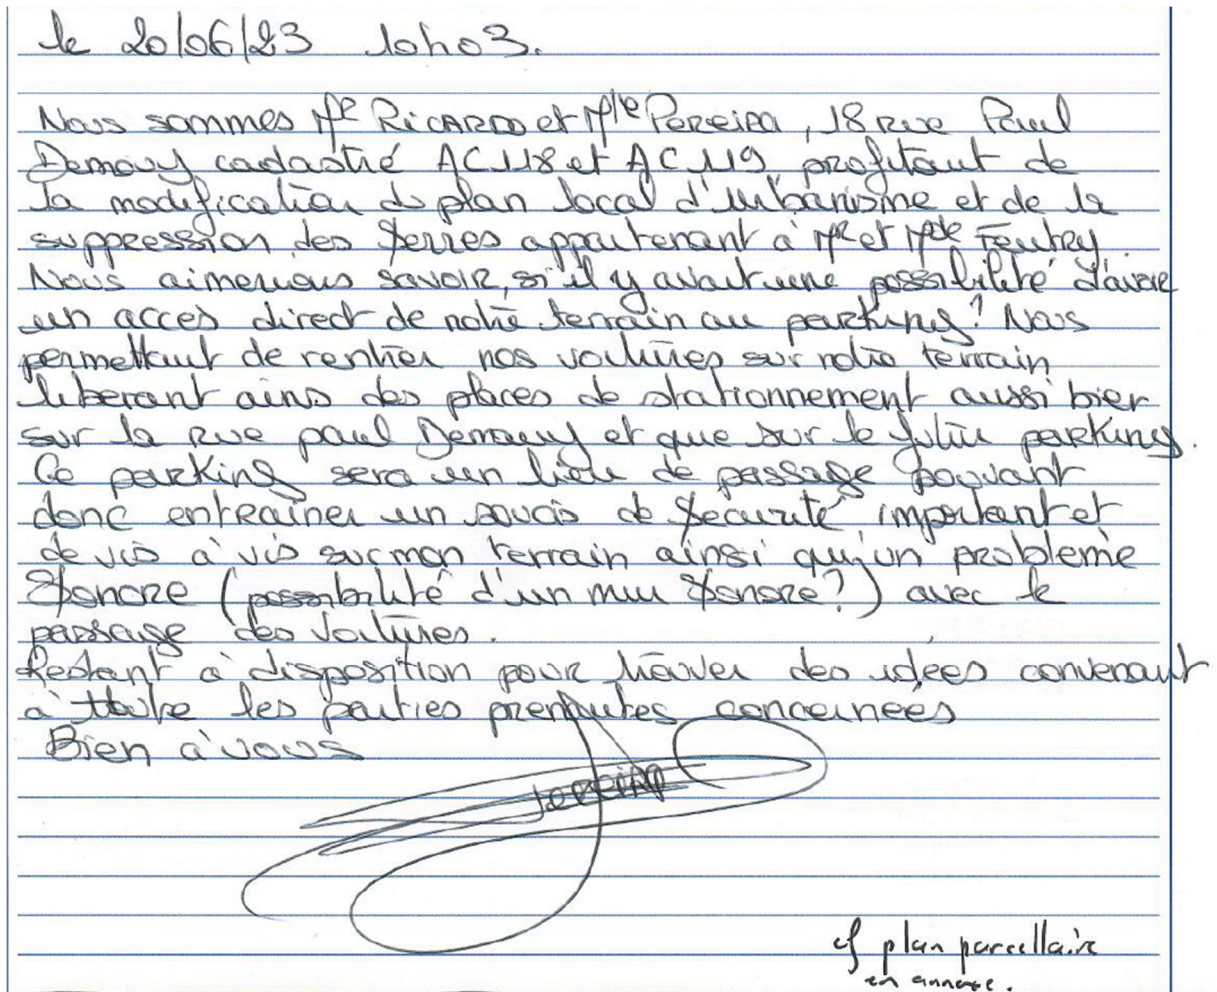 le 20/06/23 10h03.
Nous sommes Mr RiCARDO et Mlle Pereira, 18 rue Paul
Demouy cadastré AC118 et AC119, profitant de
la modification du plan local d'urbanisme et de la
suppression des serres appartenant à Mr et Mde Feutry.
Nous aimerions savoir, si il y avait une possibilité d'avoir
un accès direct de notre terrain au parking? Nous
permettant de rentrer nos voitures sur notre terrain
liberant ains des places de stationnement aussi bien
sur la rue paul Demouy et que sur le futur parking.
Ce parking sera un lieu de passage pouvant
donc entrainer un soucis de securité important et
de vis à vis sur mon terrain ainsi qu'un probleme
sonore (possibilité d'un mur sonore?) avec le
passage des voitures.
Restant à disposition pour trouver des idées convenant
à toute les parties prenantes concernées
Bien à vous
Pereira
cf plan parcellaire
en annexe.